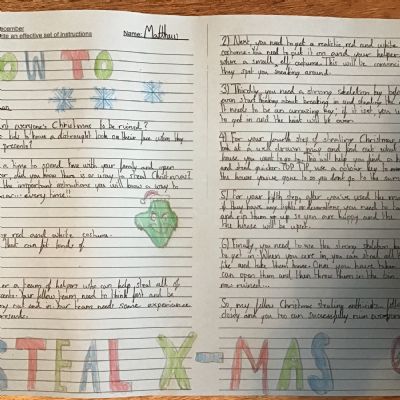 ecember
ite an effective set of instructions
Name: Matthew
OW TO
nt everyone's Christmas to be ruined?
kids to have a distraught look on their face when they
presents?
a time to spend love with your family and open
did you know there is a way to steal Christmas?
the important instructions you will know a way to
every time!!
red and white costume.
that can fit loads of
a team of helpers who can help steal all of
fellow team, need to think fast and be
and in our team need some experience
presents.
STEAL X-MAS
2) Next, you need to get a realistic red and white
costume. You need to put it on and your helpers
wear a small elf costume. This will be convincing
they spot you sneaking around.
3) Thirdly, you need a strong skeleton key before
even start thinking about breaking in and stealing the
needs to be an unworking key, if it isn't you
to get in and the heist will be over.
4) For your fourth step of stealing Christmas
look at a well drawn map and find out what
house you want to go to. This will help you find a
and steal quicker. TOP TIP, use a colour key to
the house you've gone to so you don't go to the same
5) For your fifth step, after you've used the
if they have any lights or decorations you need to
and rip them up up so you are happy and the
The house will be upset.
6) Finally, you need to use the strong skeleton
to get in. When you come in you can steal all
like and take them home. Once you have taken
can open them and then throw them in the bin
now ruined...
So now fellow Christmas stealing
closely and you too can successfully ruin everyone's